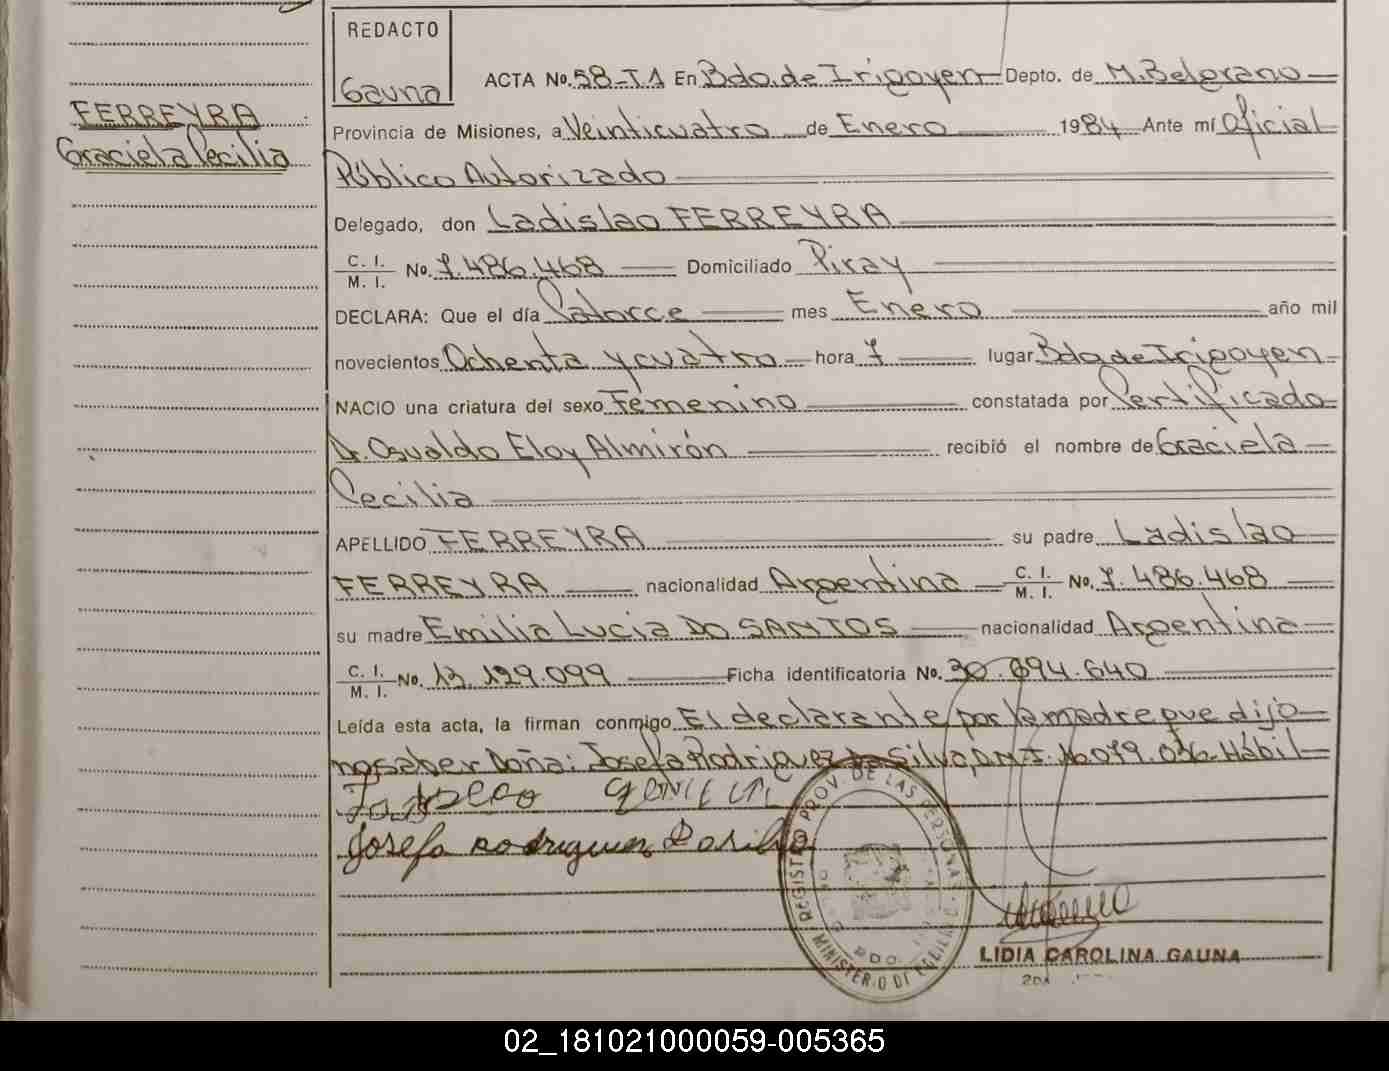 REDACTO
Gauna
FERREYRA
Graciela Cecilia
ACTA No. 58-T1 En Bdo. de Irigoyen Depto. de M. Belgrano
Provincia de Misiones, a Veinticuatro de Enero 1984 Ante mí Oficial
Público Autorizado
Delegado, don Ladislao FERREYRA
C. I.
M. I. No. 7.486.468 Domiciliado Piray
DECLARA: Que el día Catorce mes Enero año mil
novecientos Ochenta y cuatro hora 7 lugar Bdo de Irigoyen
NACIO una criatura del sexo Femenino constatada por Certificado
Dr. Osvaldo Eloy Almirón recibió el nombre de Graciela
Cecilia
APELLIDO FERREYRA su padre Ladislao
FERREYRA nacionalidad Argentina C. I. M. I. No. 7.486.468
su madre Emilia Lucia DO SANTOS nacionalidad Argentina
C. I.
M. I. No. 13.129.099 Ficha identificatoria No. 30.694.640
Leída esta acta, la firman conmigo El declarante por la madre que dijo
no saber Doña: Josefa Rodriguez Da Silva, D.N.I. 16.079.036. Hábil
Josefa Rodriguez Da Silva
REGISTRO PROV. DE LAS PERSONAS
MINISTERIO DE GOBIERNO
LIDIA CAROLINA GAUNA
02_181021000059-005365